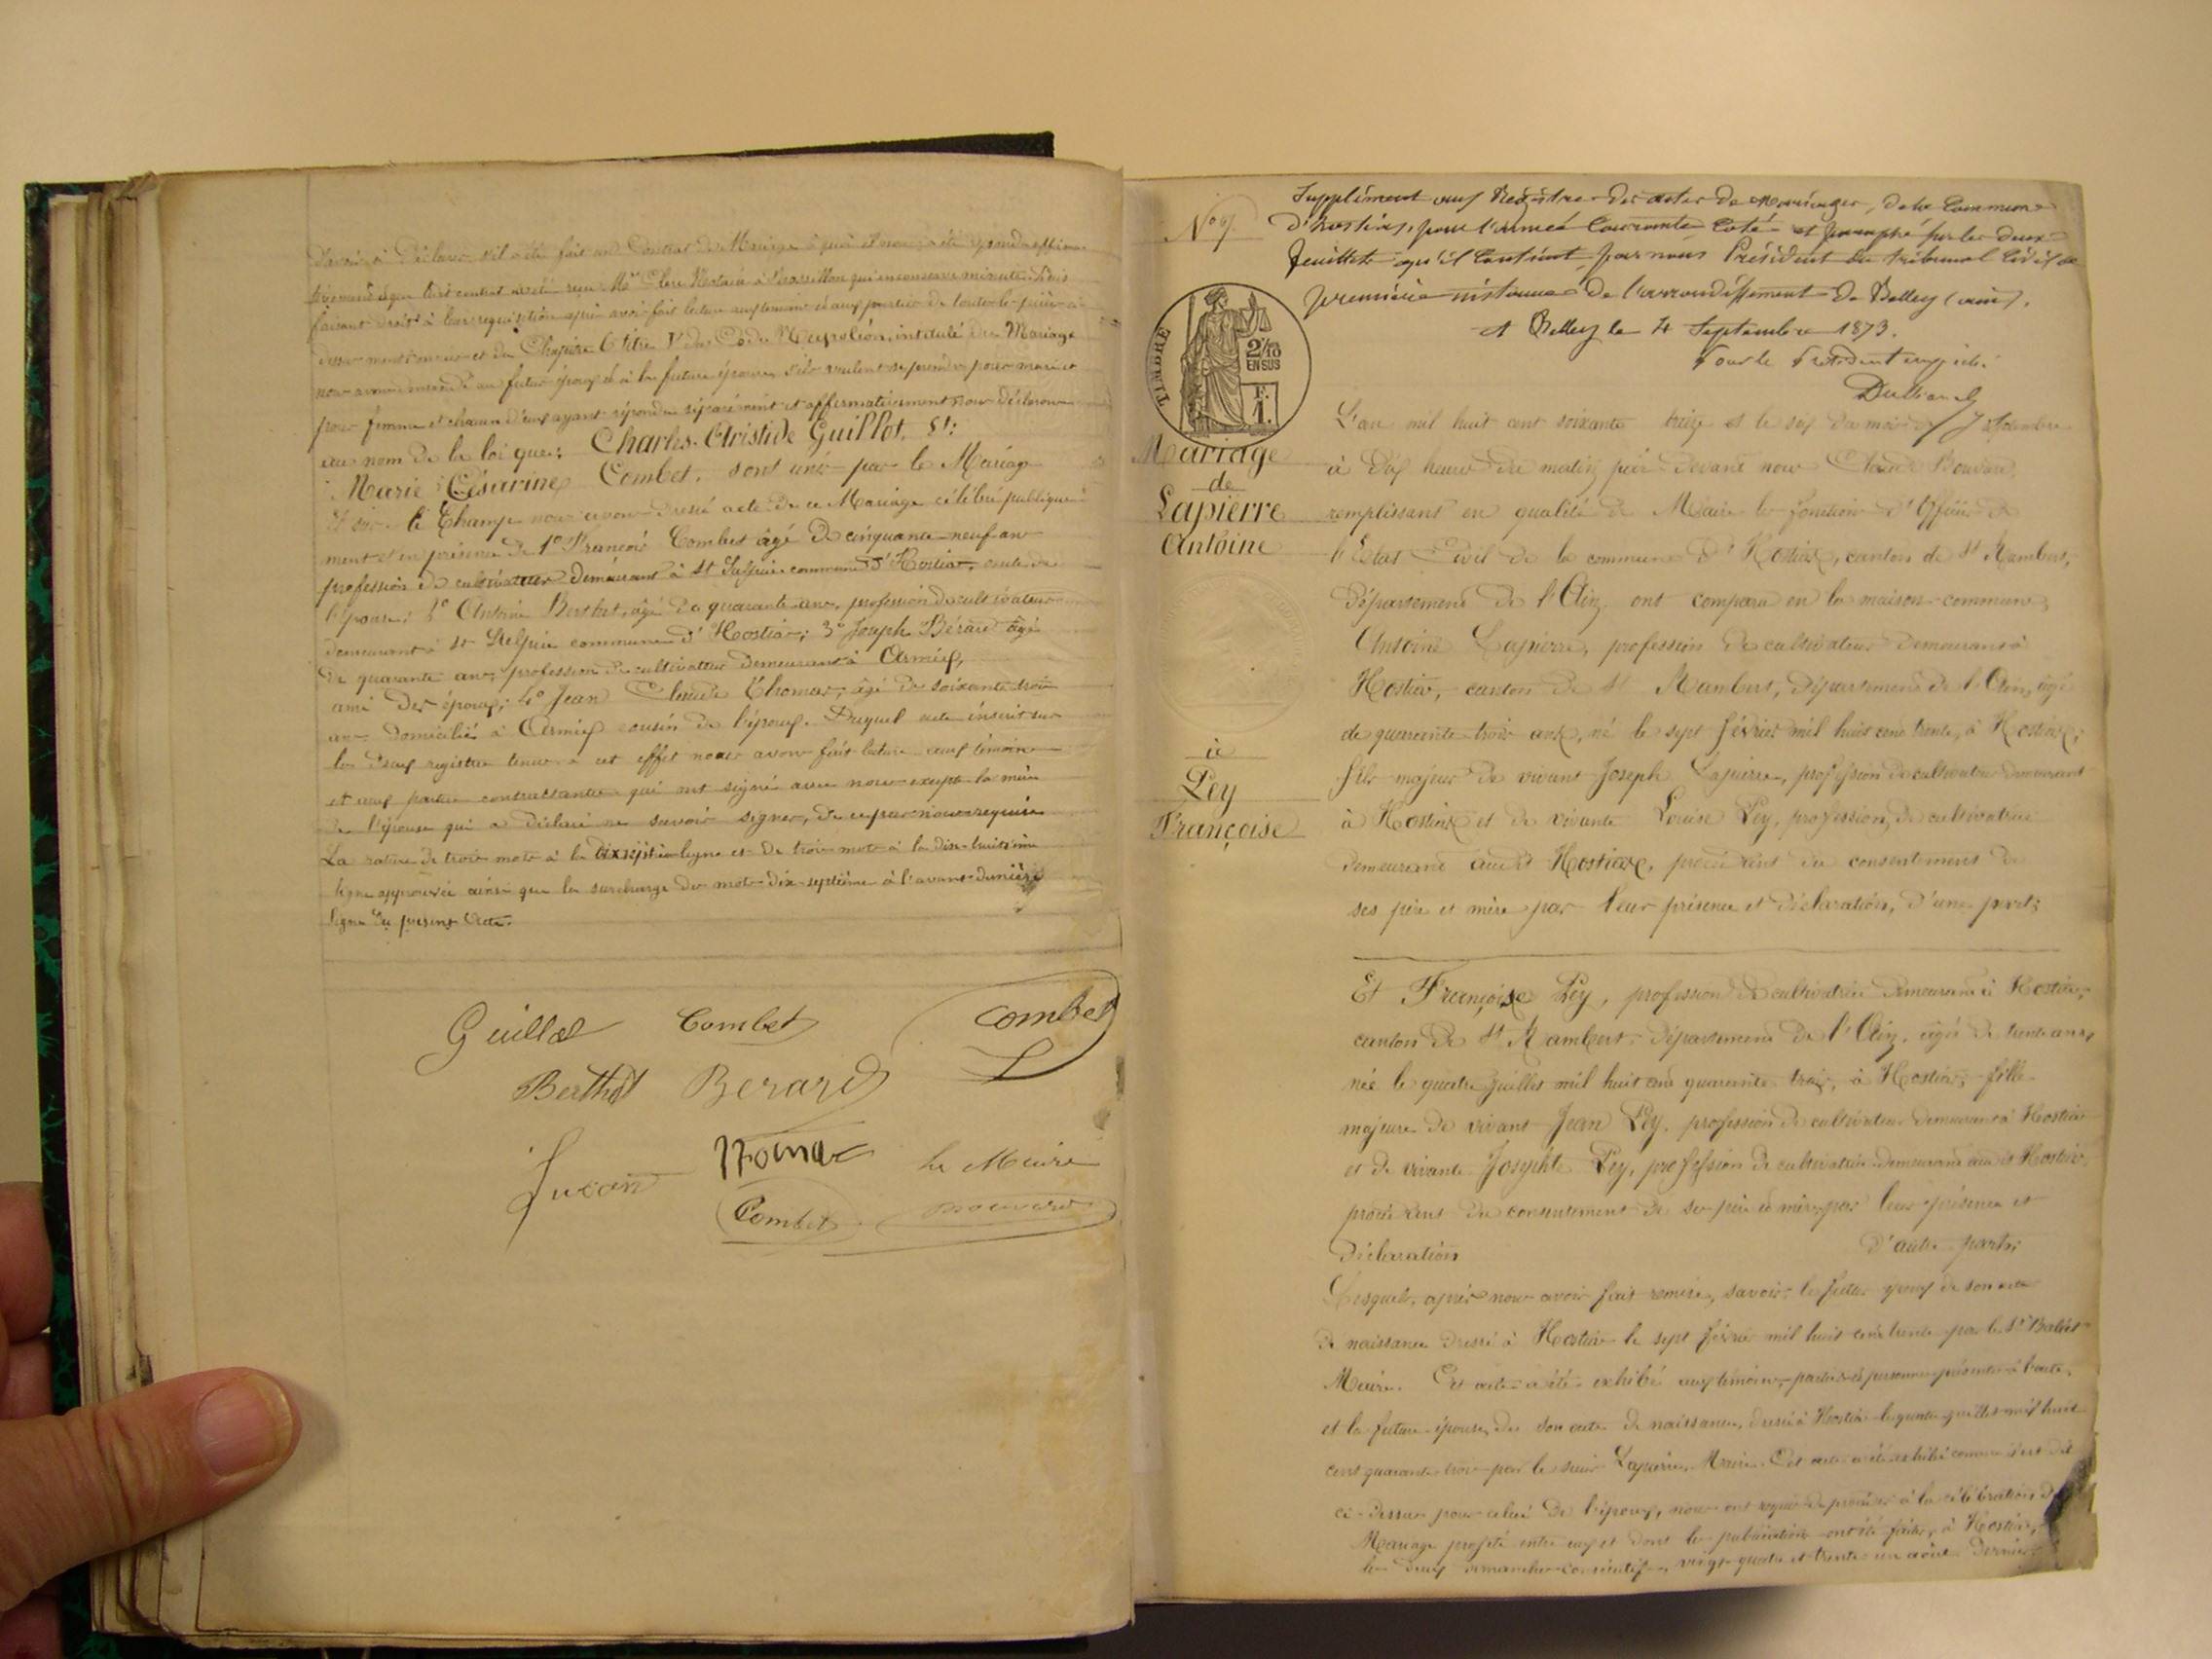 d'avoir à déclarer s'il a été fait un Contrat de Mariage à quoi il nous a été répondu affirma-
tivement et que ledit contrat a été reçu Me Clerc Notaire à qui en conserve minute. Puis
faisant droit à leur requisition après avoir fait lecture aux parties de toutes les pièces ci-
dessus mentionnées et du Chapitre 6 titre V du Code Napoléon, intitulé du Mariage
nous avons demandé au futur époux et à la future épouse s'ils veulent se prendre pour mari et
pour femme et chacun d'eux ayant répondu séparément et affirmativement nous déclarons
au nom de la loi que: Charles Aristide Guillot, et:
Marie Césarine Combet. sont unis par le Mariage
Et sur le Champ nous avons dressé acte de ce Mariage célébré publique-
ment et en présence de 1° François Combet âgé de cinquante-neuf ans
profession de cultivateur demeurant à St Sulpice commune d'Hostiaz, de
l'épouse; 2° Antoine Berthet, âgé de quarante ans, profession de cultivateur
demeurant à St Sulpice commune d'Hostiaz; 3° Joseph Bérard âgé
de quarante ans, profession de cultivateur demeurant à Armix,
ami des époux; 4° Jean Claude Thomas, âgé de soixante trois
ans domicilié à Armix cousin de l'époux. Duquel acte inscrit sur
les deux registres tenus à cet effet nous avons fait lecture aux témoins
et aux parties contractantes qui ont signé avec nous excepté la mère
de l'épouse qui a déclaré ne savoir signer, de ce par nous requise
La rature de trois mots à la ligne et de trois mots à la dix-huitième
ligne approuvée ainsi que la surcharge du mot dix-septième à l'avant-dernière
ligne du présent acte.
Guillot Combet Combet
Berthet Berard
Juvanon Thomas le Maire
Combet Bouvard
N° 9
Supplément aux Registres des actes de mariages, de la Commune
d'Hostiaz, pour l'année Courante Coté et paraphé sur les deux
feuillets qu'il Contient, par nous Président du tribunal Civil de
première instance de l'arrondissement de Belley (ain).
A Belley le 4 Septembre 1873.
Pour le Président empêché.
TIMBRE
2/10
EN SUS
F.
1.
Mariage
de
Lapierre
Antoine
à
Pey
Françoise
L'an mil huit cent soixante treize et le six du mois de 7 Septembre
à dix heures du matin par devant nous Claude Bouvard
remplissant en qualité de Maire les fonctions d'Officier de
l'Etat Civil de la commune d'Hostiaz, canton de St Rambert,
Département de l'Ain, ont comparu en la maison commune,
Antoine Lapierre, profession de cultivateur demeurant à
Hostiaz, canton de St Rambert, département de l'Ain, âgé
de quarante trois ans, né le sept février mil huit cent trente, à Hostiaz;
fils majeur de vivant Joseph Lapierre, profession de cultivateur demeurant
à Hostiaz et de vivante Louise Pey, profession de cultivatrice
demeurant audit Hostiaz, procédant du consentement de
ses père et mère par leur présence et déclaration, d'une part;
Et Françoise Pey, profession de cultivatrice demeurant à Hostiaz,
canton de St Rambert, département de l'Ain, âgée de trente ans,
née le quatre juillet mil huit cent quarante trois, à Hostiaz, fille
majeure de vivant Jean Pey, profession de cultivateur demeurant à Hostiaz
et de vivante Josephte Pey, profession de cultivatrice demeurant audit Hostiaz,
procédant du consentement de ses père et mère par leur présence et
déclaration d'autre part;
Lesquels, après nous avoir fait remise, savoir: le futur époux de son acte
de naissance dressé à Hostiaz le sept février mil huit cent trente par le Sr
Maire. Cet acte a été exhibé aux témoins, parties et personnes présentes à l'acte,
et la future épouse, de son acte de naissance, dressé à Hostiaz le quatre juillet mil huit
cent quarante trois par le sieur Lapierre, Maire. Cet acte a été exhibé comme il est dit
ci-dessus pour celui de l'époux, nous ont requis de procéder à la célébration du
Mariage projeté entre eux et dont les publications ont été faites, à Hostiaz,
les deux dimanches consécutifs, vingt-quatre et trente un août dernier